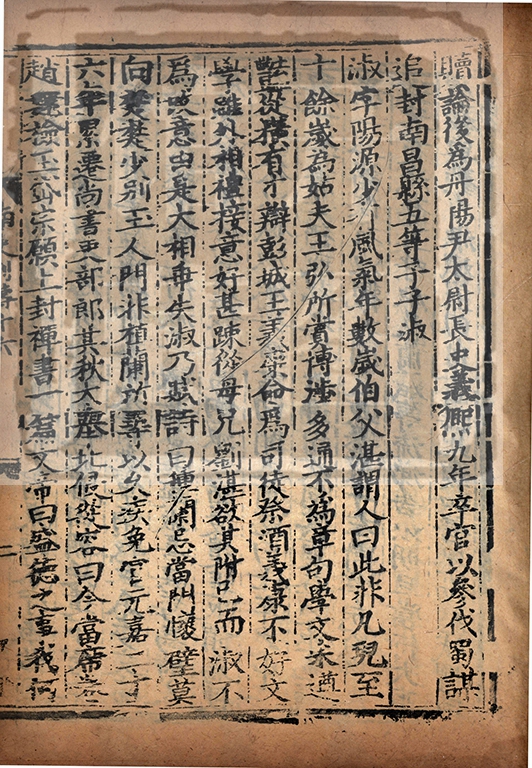 贖論後為丹陽尹太尉長史義熙九年卒官以參伐蜀謀
追封南昌縣五等子子淑
淑字陽源少風氣年數歲伯父湛謂人曰此非凡兒至
十餘歲為姑夫王弘所賞博涉多通不為章句學文采遒
豔從橫有才辯彭城王義康命爲司徒祭酒義康不好文
學雖外相禮接意好甚踈從母兄劉湛欲其附己而淑不
爲改意由是大相乖失淑乃賦詩曰種蘭忌當門懷璧莫
向楚楚少別玉人門非植蘭所尋以久疾免官元嘉二十
六年累遷尚書吏部郎其秋大舉北侵從容曰今當席卷
趙魏檢玉岱宗願上封禪書一篇文帝曰盛德之事我何